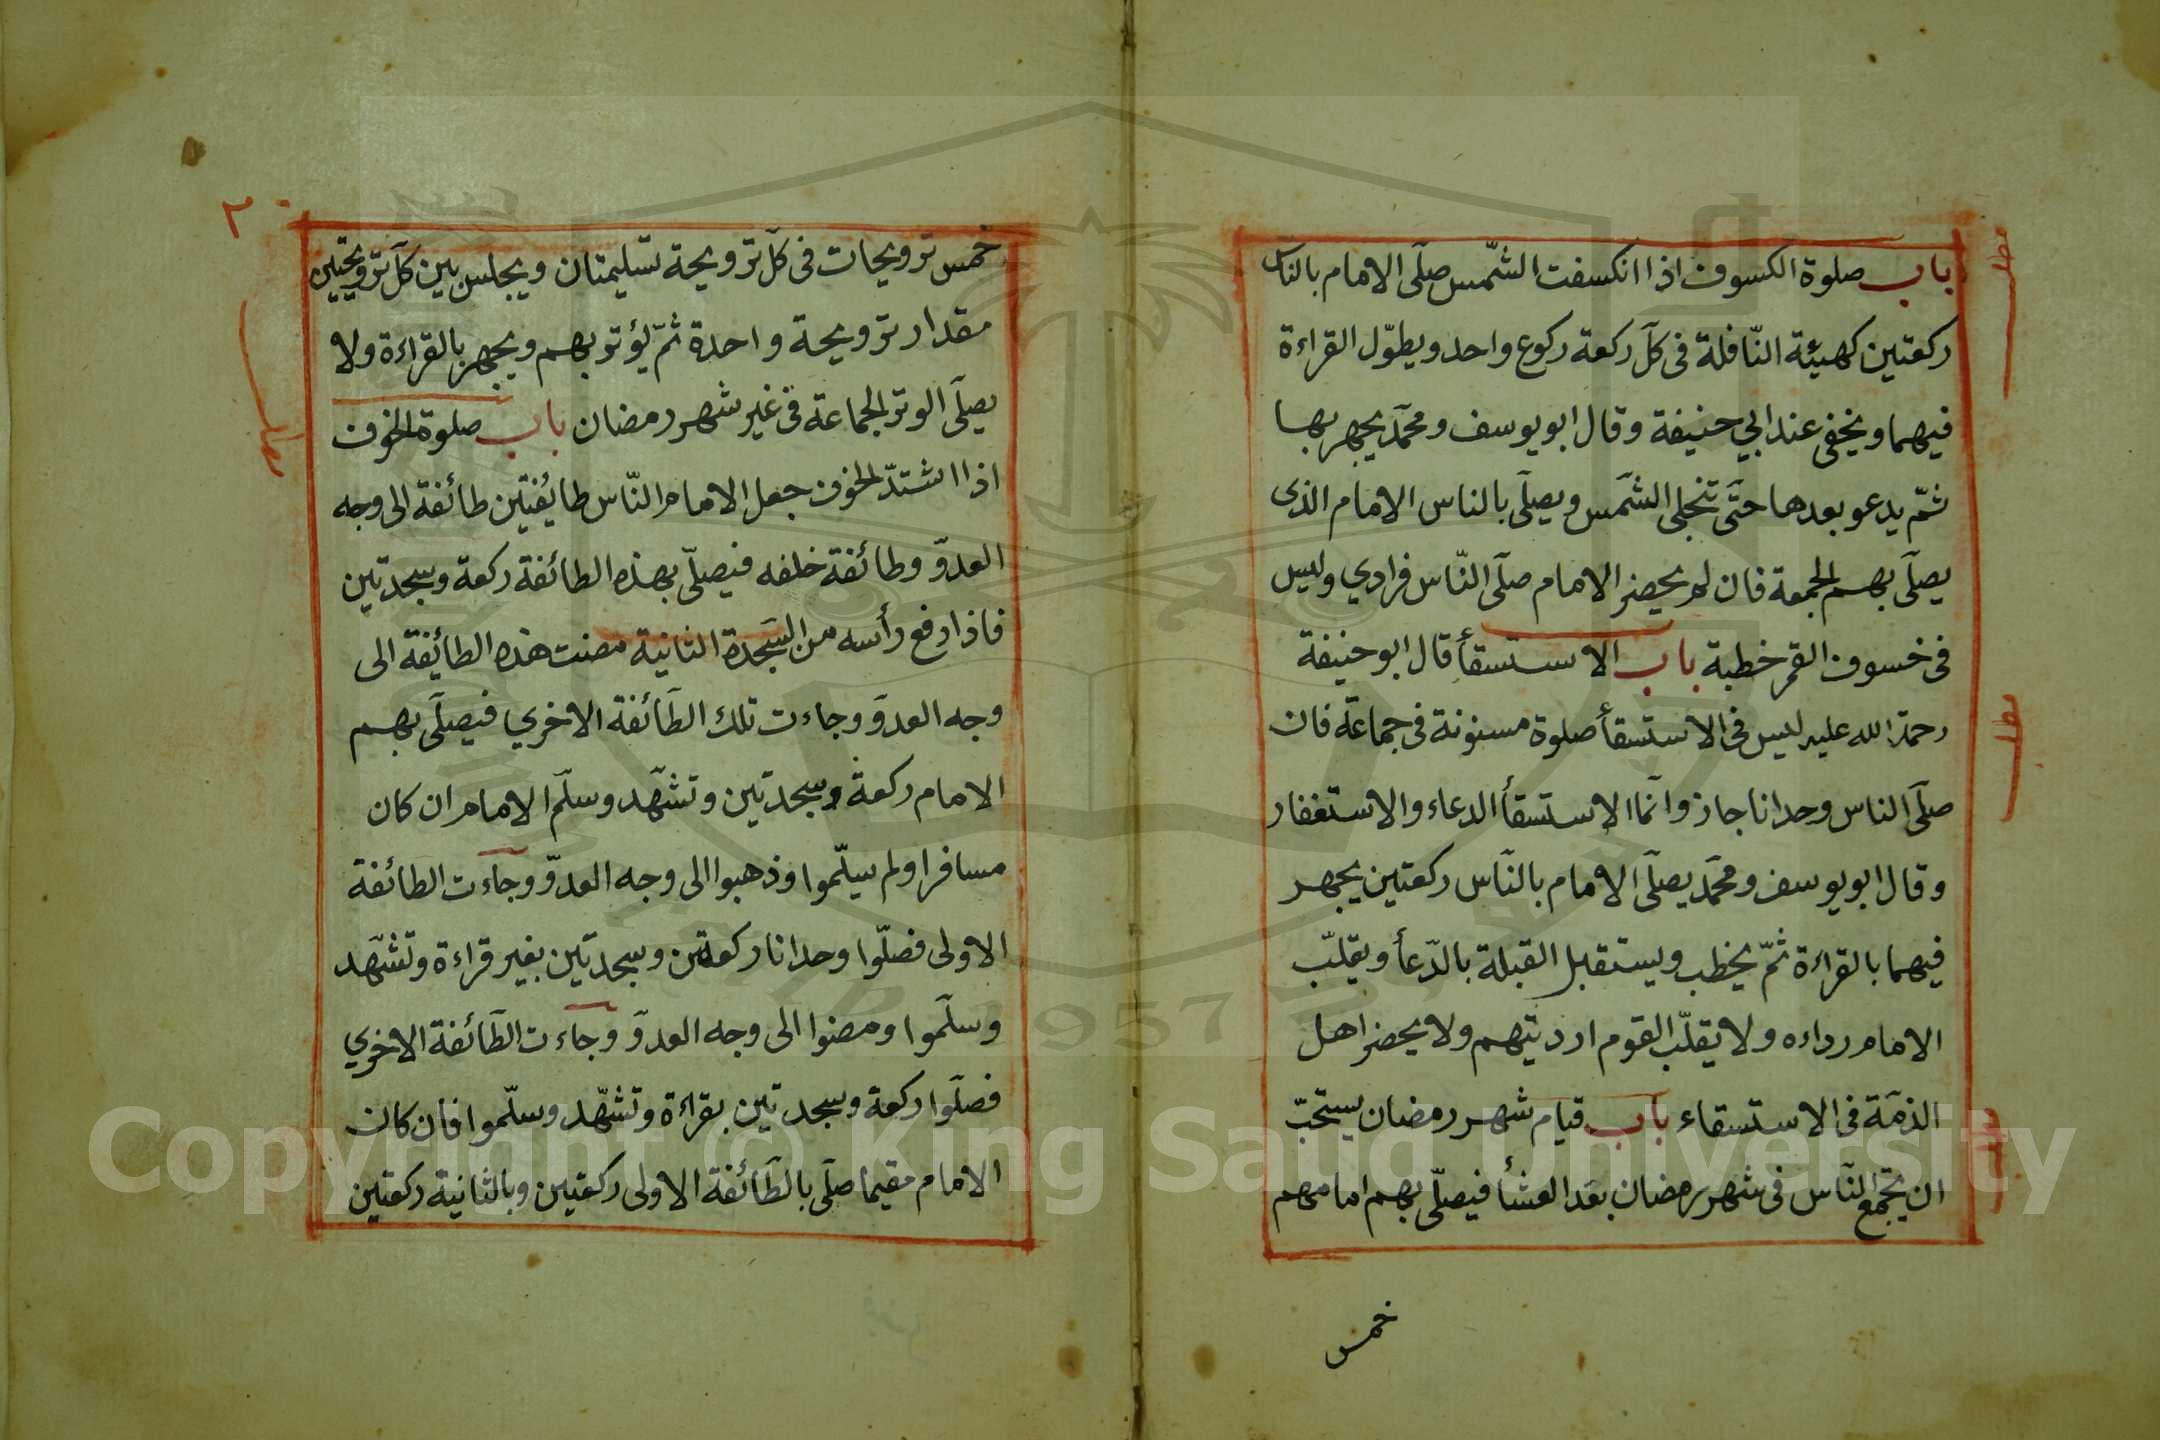 باب صلوة الكسوف اذا انكسفت الشّمس صلّى الامام بالناس
ركعتين كهيئة النّافلة فى كلّ ركعة ركوع واحد ويطوّل القراءة
فيهما ويخفى عند ابي حنيفة وقال ابو يوسف ومحمّد يجهر بها
ثمّ يدعو بعدها حتّى تنجلى الشّمس ويصلّى بالناس الامام الذى
يصلّى بهم الجمعة فان لم يحضر الامام صلّى النّاس فرادي وليس
فى خسوف القمر خطبة باب الاستسقأ قال ابو حنيفة
رحمة الله عليه ليس فى الاستسقأ صلوة مسنونة فى جماعة فان
صلّى الناس وحدانا جاز وانّما الاستسقأ الدعاء والاستغفار
وقال ابو يوسف ومحمّد يصلّى الامام بالنّاس ركعتين يجهر
فيهما بالقراءة ثمّ يخطب ويستقبل القبلة بالدّعأ ويقلّب
الامام رداءه ولا يقلّب القوم ارديتهم ولا يحضر اهل
الذمّة فى الاستسقاء باب قيام شهر رمضان يستحبّ
ان يجتمع النّاس فى شهر رمضان بعد العشأ فيصلّى بهم امامهم
خمس
٢٠
خمس ترويحات فى كلّ ترويحة تسليمتان ويجلس بين كلّ ترويحتين
مقدار ترويحة واحدة ثمّ يؤتر بهم ويجهر بالقراءة ولا
يصلّى الوتر لجماعة فى غير شهر رمضان باب صلوة الخوف
اذا اشتدّ الخوف جعل الامام النّاس طايفتين طائفة الى وجه
العدوّ وطائفة خلفه فيصلّى بهذه الطائفة ركعة وسجدتين
فاذا رفع رأسه من السّجدة الثانية مضت هذه الطائفة الى
وجه العدوّ وجاءت تلك الطّائفة الاخري فيصلّى بهم
الامام ركعة وسجدتين وتشهّد وسلّم الامام ان كان
مسافرا ولم سيلّموا وذهبوا الى وجه العدوّ وجاءت الطائفة
الاولى فصلّوا وحدانا ركعتين وسجدتين بغير قراءة وتشهّد
وسلّموا ومضوا الى وجه العدوّ وجاءت الطّائفة الاخري
فصلّوا ركعة وسجدتين بقراءة وتشهّد وسلّموا فان كان
الامام مقيما صلّى بالطّائفة الاولى ركعتين وبالثانية ركعتين
Copyright © King Saud University
1957